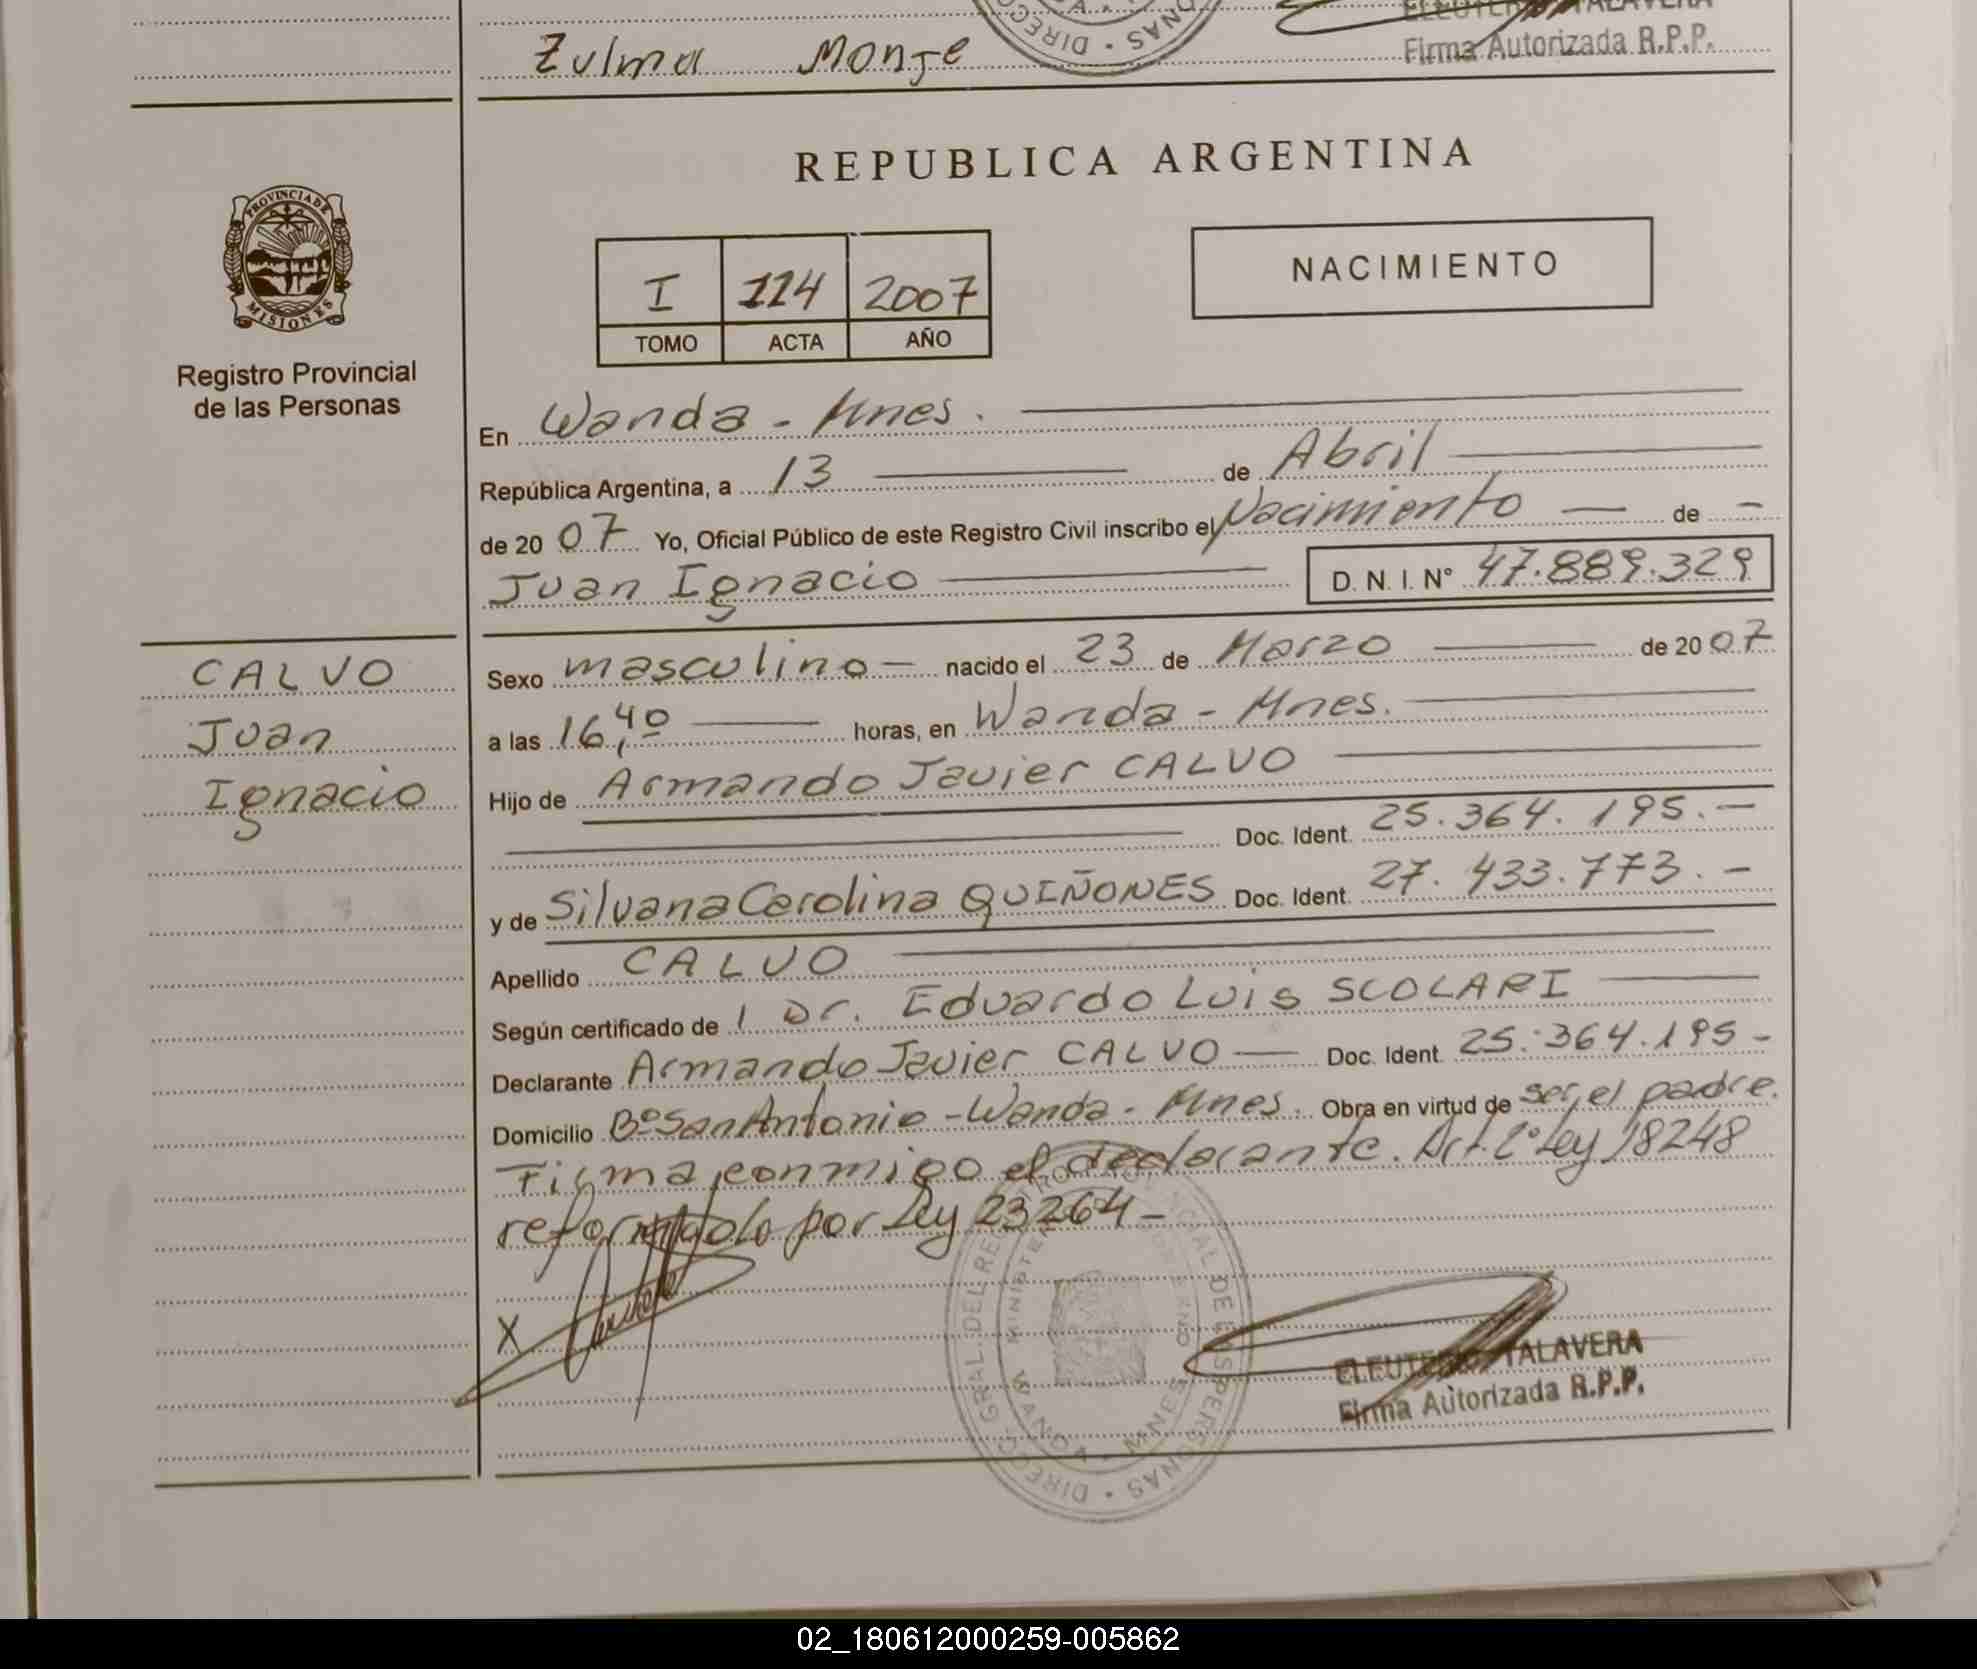 Zulma Monje
ELEUTERIO TALAVERA
Firma Autorizada R.P.P.
PROVINCIA DE
MISIONES
Registro Provincial
de las Personas
REPUBLICA ARGENTINA
I 114 2007
TOMO ACTA AÑO
NACIMIENTO
En Wanda - Mnes.
República Argentina, a 13 de Abril
de 2007 Yo, Oficial Público de este Registro Civil inscribo el Nacimiento — de -
Juan Ignacio D. N. I. N° 47.889.329
CALVO
Juan
Ignacio
Sexo masculino - nacido el 23 de Marzo de 2007
a las 16,40 horas, en Wanda - Mnes.
Hijo de Armando Javier CALVO
Doc. Ident. 25.364.195.-
y de Silvana Carolina QUIÑONES Doc. Ident. 27.433.773.-
Apellido CALVO
Según certificado de 1 Dr. Eduardo Luis SCOLARI
Declarante Armando Javier CALVO — Doc. Ident. 25.364.195-
Domicilio B° San Antonio - Wanda - Mnes. Obra en virtud de ser el padre.
Firma conmigo el declarante. Art. 2° Ley 18248
reformado por Ley 23264 -
X
WANDA - MNES
ELEUTERIO TALAVERA
Firma Autorizada R.P.P.
02_180612000259-005862